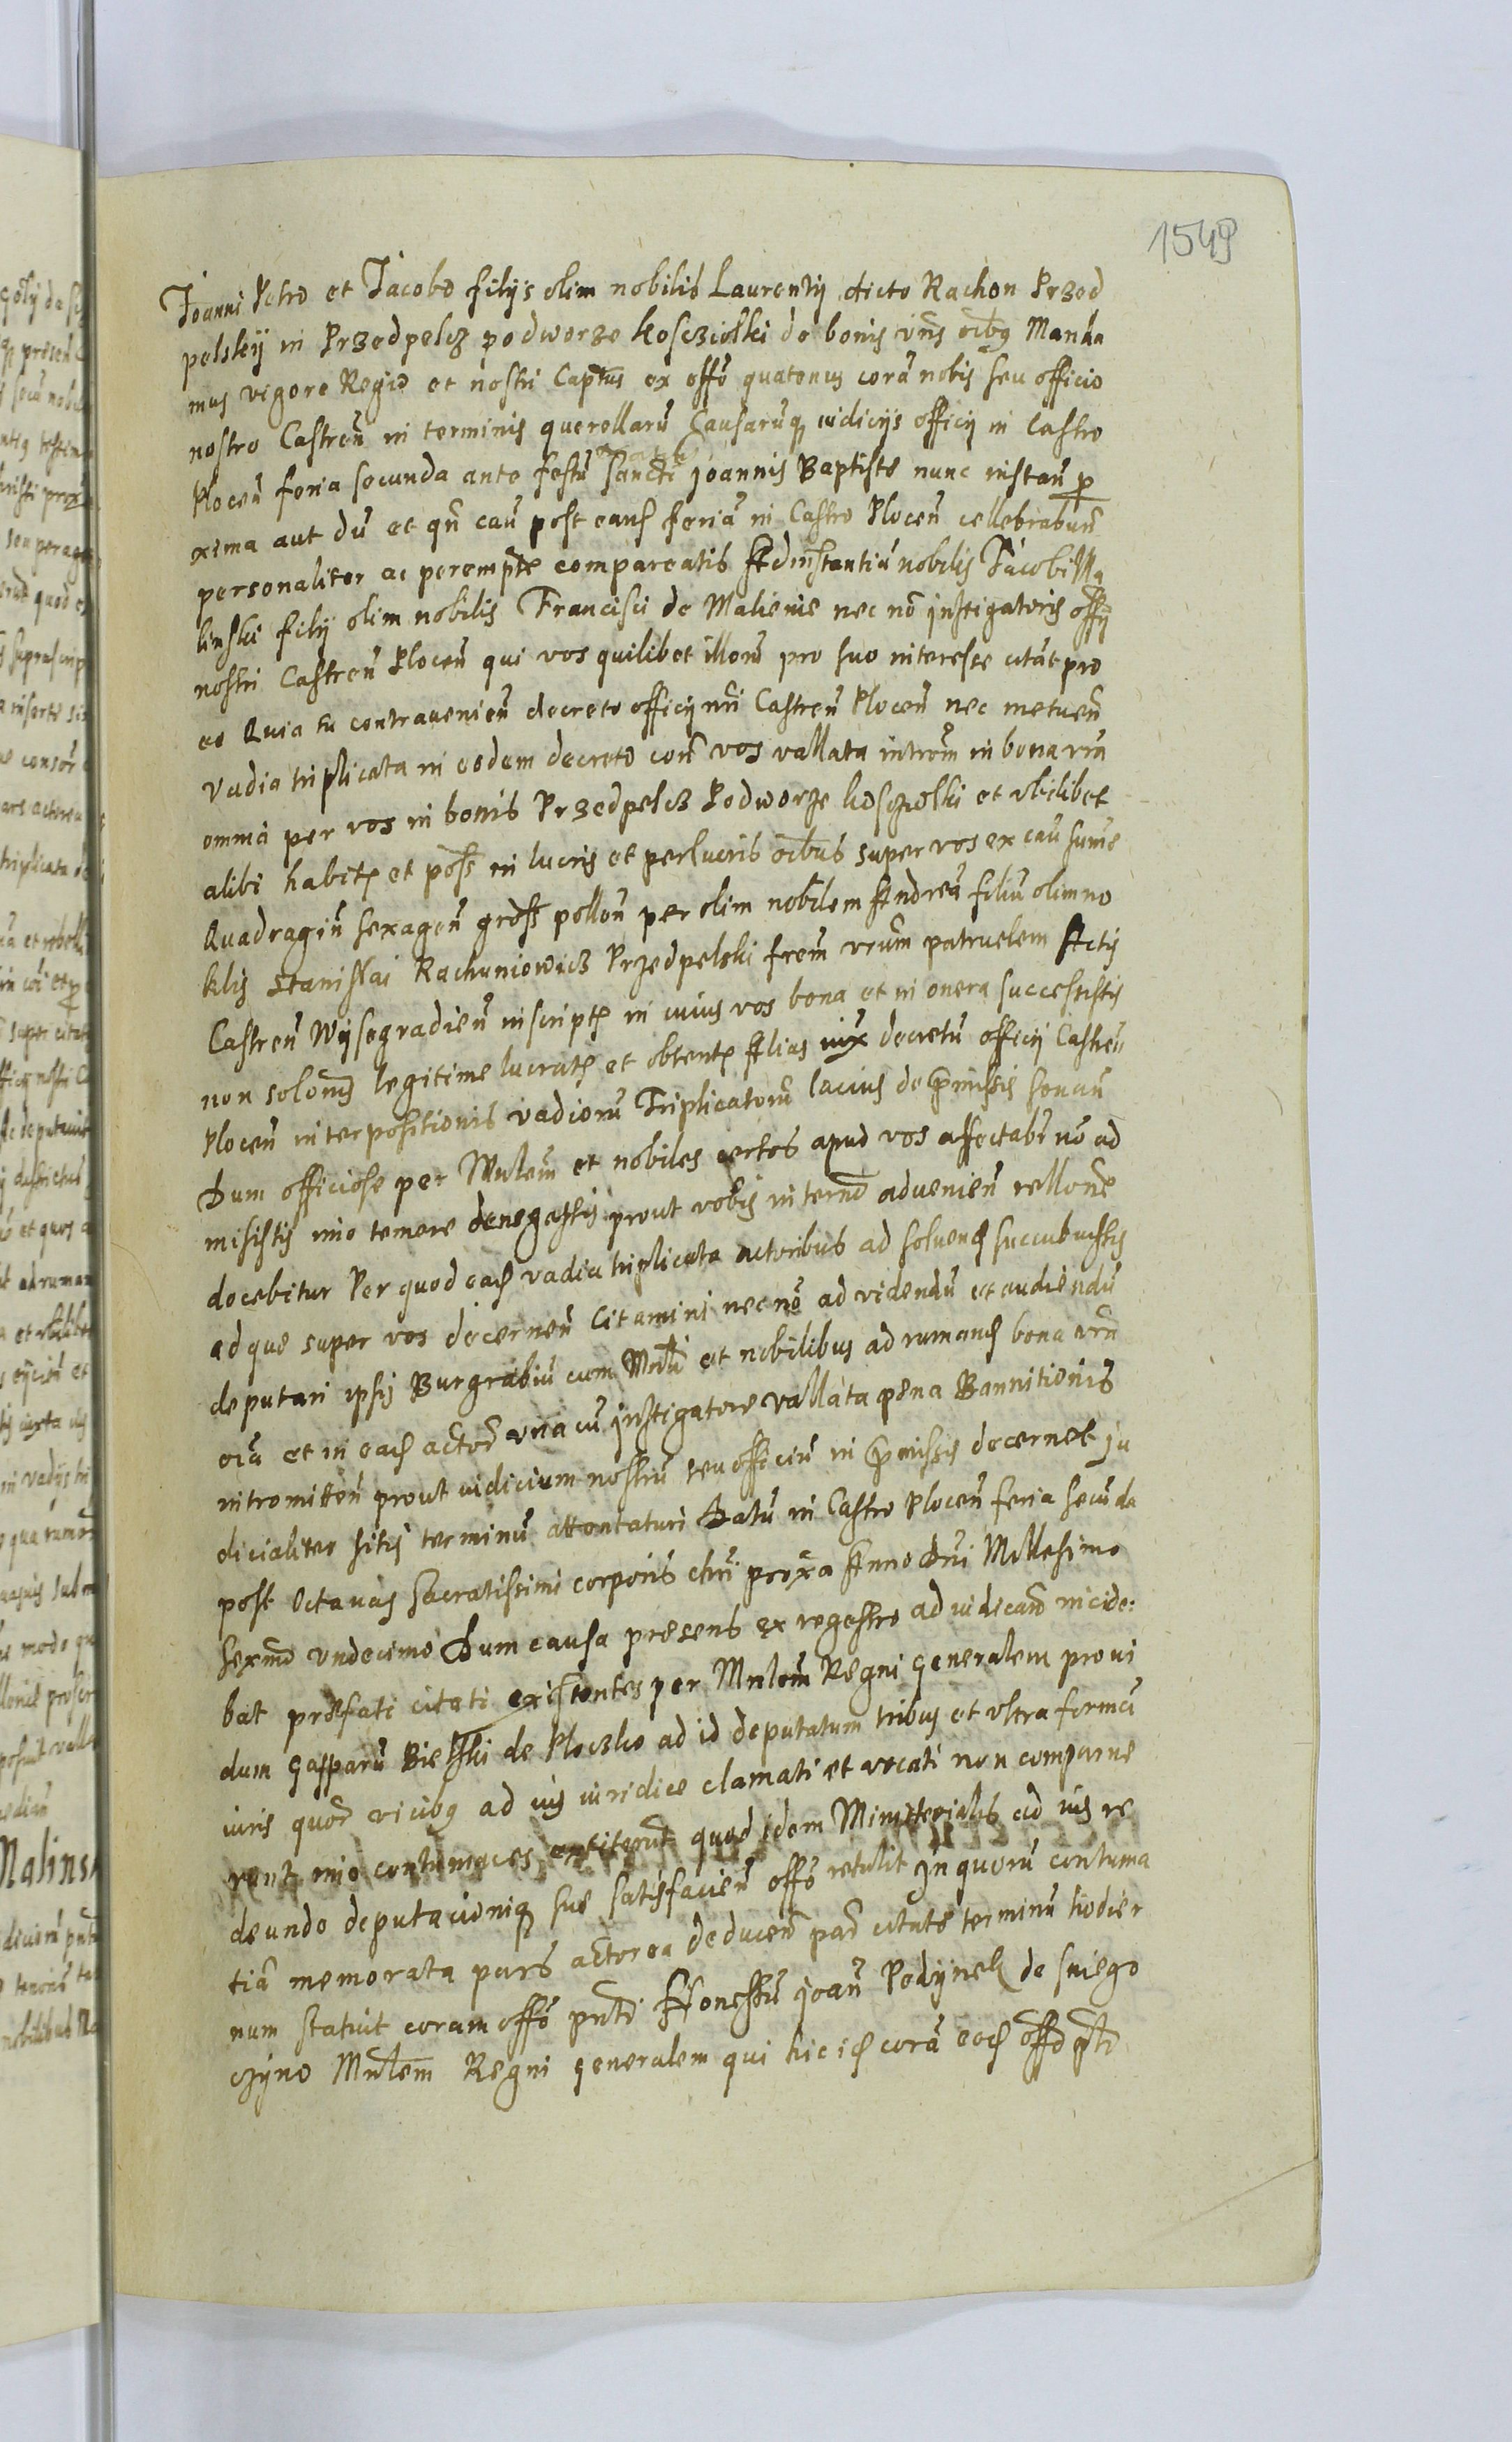 1549
Joanni Petro et Jacobo filÿs olim nobilis Laurentÿ dicto Rachon Przed
pelskÿ in Przedpelcz podworze koscziolki de bonis vr̃is oĩbg Manda
mus vigore Regio et nostri Capt̃us ex offõ quatenus corã nobis seu officio
nostro Castreñ in terminis querellarũ Causarũq iudicÿs officÿ in Castro
Ploceñ feria secunda ante festũ Sancti Joannis Baptiste nunc instañ p
oxima aut dũ et qñ cau post eand feriã in Castro Ploceñ cellebrabunt̃
personaliter ac perempt̃e compareatis Ad instantiã nobilis Jacobi Ma
linski filÿ olim nobilis Francisci de Malienie nec nõ instigatoris offÿ
nostri Castreñ Ploceñ qui vos quilibet illorũ pro suo interesse citãt pro
eo Quia tu contravenieñ decreto officÿ nr̃i Castreñ Ploceñ nec metueñ
vadia triplicata in eodem decreto coñ vos vallata introm̃ in bona vr̃a
omnia per vos in bonis Przedpelcz Podworze kosczolki et vbilibet
alibi habit et poss̃ in lucris et perlucris oĩbus super vos ex cau sume
Quadragiñ sexageñ gross polloñ per olim nobilem Andreã filiũ olim no
bilis Stanislai Rachuniowicz Przedpelski frem̃ vrũm patruelem Actis
Castreñ Wÿsogradieñ inscript in cuius vos bona et in onera successistis
non solong legitime lucrat et obtent Alias iux decretũ officÿ Castreñ
Ploceñ interpositionis vadiorũ Triplicatorũ lacius de p̃missis sonañ
Dum officiose per Mnlem̃ et nobiles certos apud vos affectabr̃ nõ ad
misistis imo temere denegastis prout vobis in termĩo advenieñ rellone
docebitur Per quod ead vadia triplicata actoribus ad solvend succubuistis
ad que super vos decerneñ Citamini nec nõ ad videndũ et audiendũ
deputari ipsis Burgrabiũ cum Mnlĩ et nobilibus ad rumand bona vr̃a
oĩa et in ead actor̃ vna cũ instigatore vallata pena Bannitionis
intromitteñ prout iudicium nostrũ seu officiũ in p̃missis decernet Ju
dicialiter sitis terminũ attentaturi Datũ in Castro Ploceñ feria secũda
post Octavas Sacratissimi corporis chr̃i prox̃a Anno Dñi Millesimo
sexm̃o vndecimo Dum causa presens ex regestro ad iudicand̃ incide:
bat prefati citati existentes per Mnlem̃ Regni generalem provi
dum Gasparũ Bielski de Ploczko ad id deputatum tribus et vltra formã
iuris quor̃ vicibg ad ius iuridice clamati et vocati non comparue
runt imo contumaces extiterunt quod idem Ministerialis ad ius re
deundo deputacioniq sue satisfacieñ offõ retulit In quorũ contuma
tiã memorata pars actorea deduceñ par̃ citate terminũ hodier
num statuit coram offõ pnt̃i Honestũ Joañ Podÿnek de sniego
czÿno Mnlem̃ Regni generalem qui hic id corã eod offõ pñti